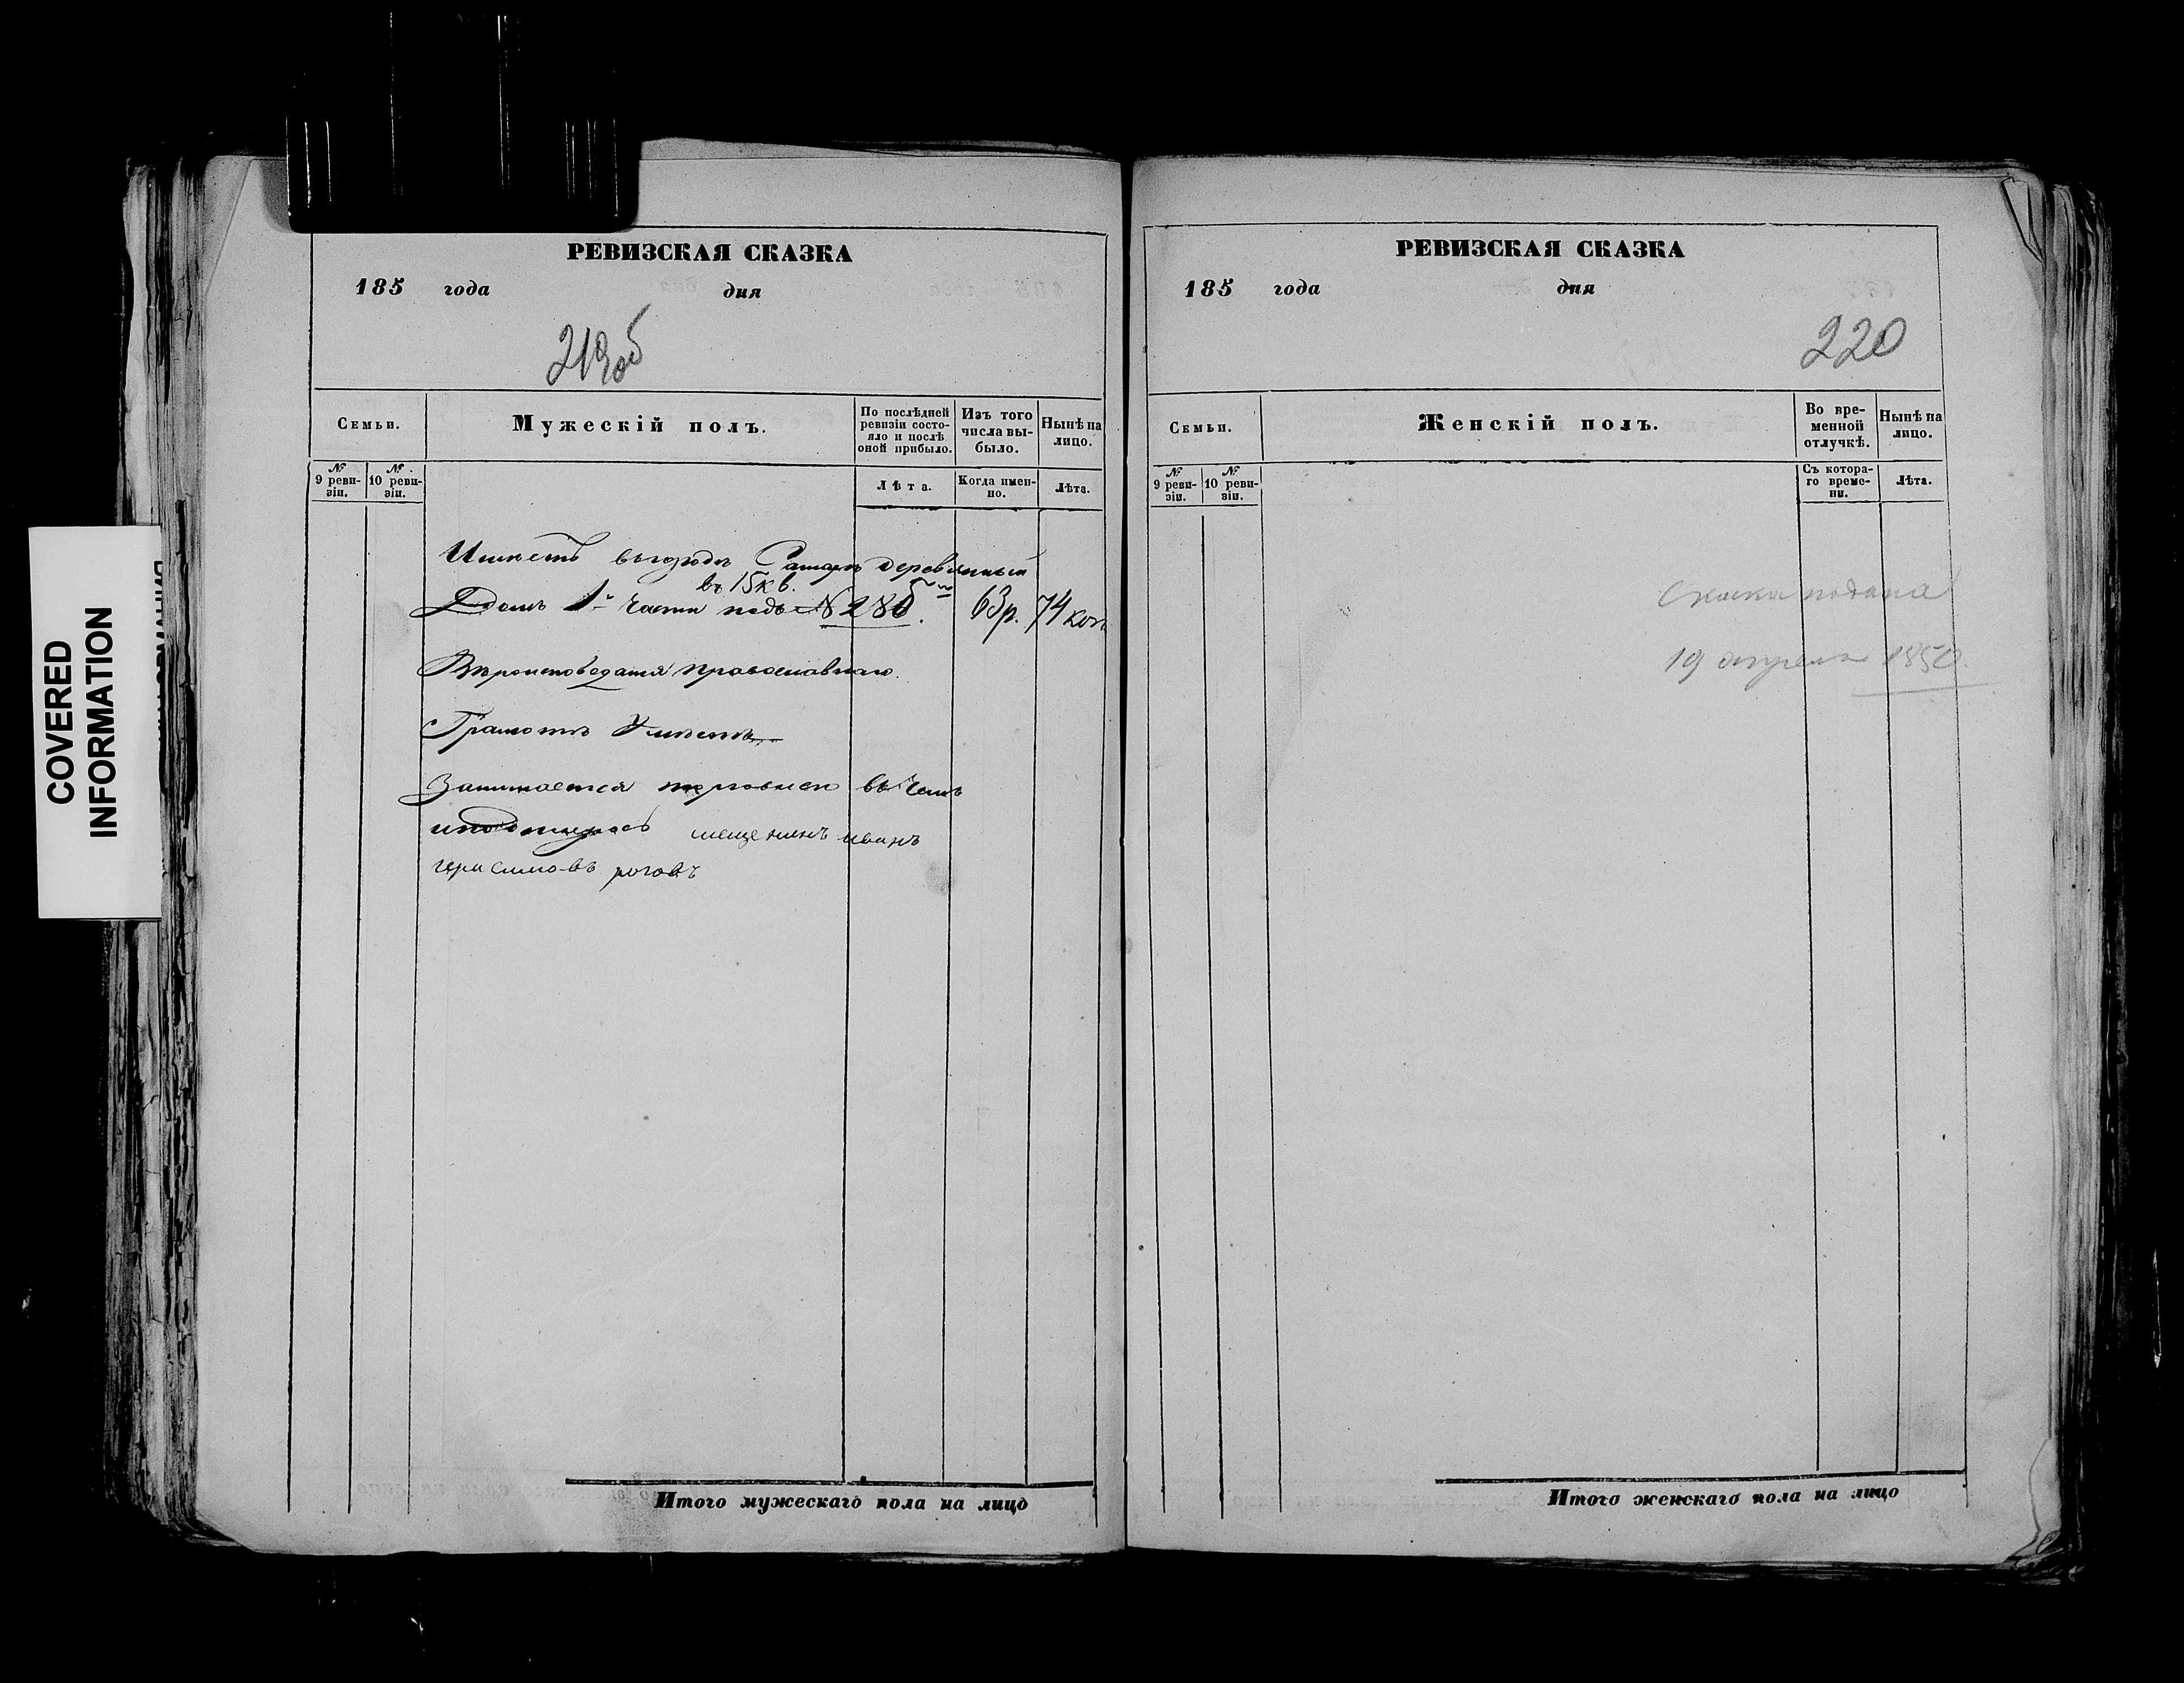 COVERED
INFORMATION
РЕВИЗСКАЯ СКАЗКА
185 года дня
219об
Семьи.
Мужескій полъ.
По послѣдней ревизіи состояло и послѣ оной прибыло.
Изъ того числа выбыло.
Нынѣ на лицо.
№ 9 ревизіи.
№ 10 ревизіи.
Лѣта.
Когда именно.
Лѣта.
Имѣетъ въ городѣ Самарѣ деревянный
въ 15 кв.
Домъ 1й части подъ № 286 63 р. 74 коп
Вѣроисповеданія православнаго.
Грамотѣ Умѣетъ
Занимается торговлею въ чемъ
и подписуюсь мещенинъ иванъ
герасимовъ роговъ
Итого мужескаго пола на лицо
РЕВИЗСКАЯ СКАЗКА
185 года дня
220
Семьи.
Женскій полъ.
Во временной отлучкѣ.
Нынѣ на лицо.
№ 9 ревизіи.
№ 10 ревизіи.
Съ котораго времени.
Лѣта.
Скаска подана
19 апреля 1850.
Итого женскаго пола на лицо